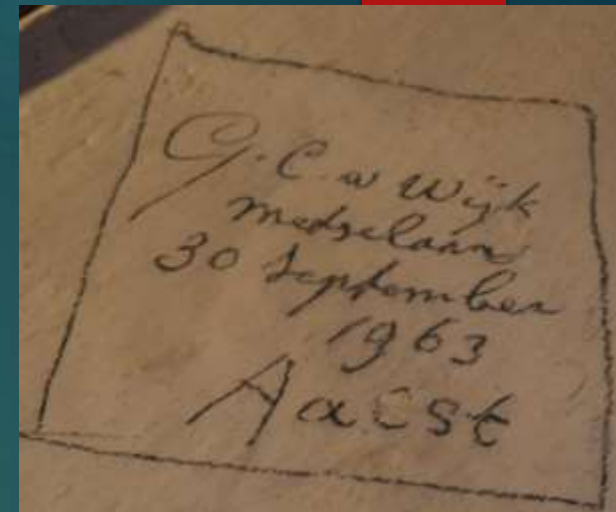 G. C. v Wijk
Metselaar
30 September
1963
Aalst